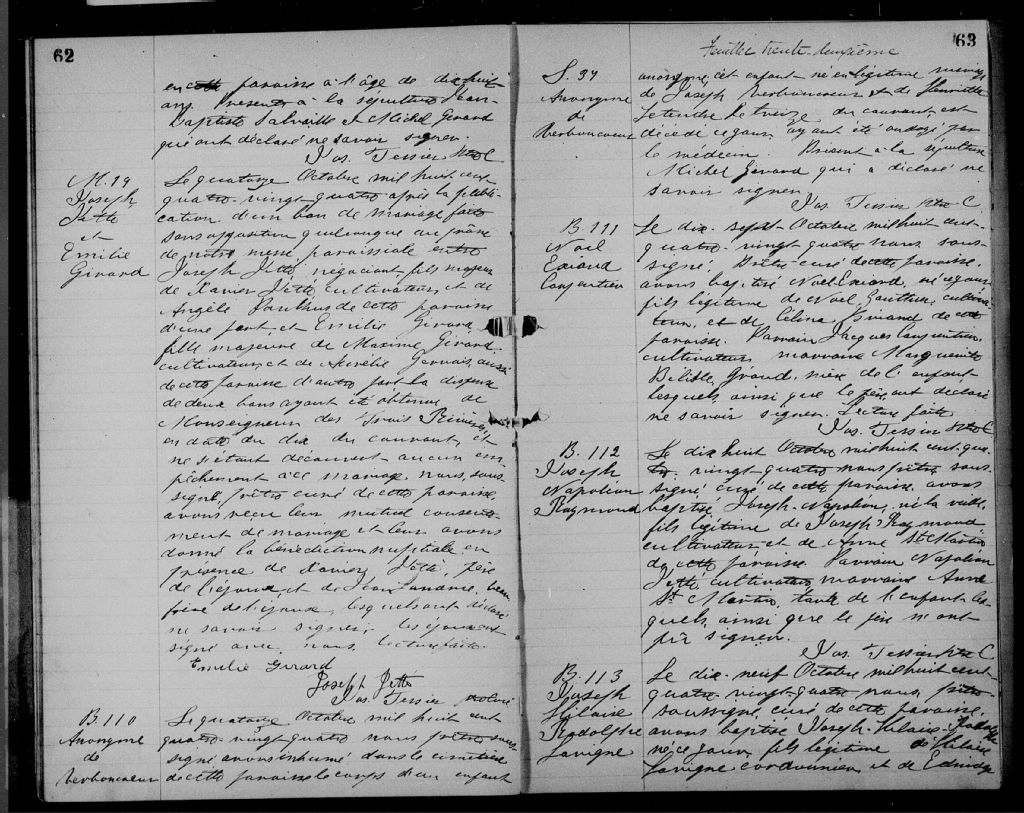 62
en cette paroisse à l'âge de dix huit
ans. Présents à la sépulture Jean-
Baptiste et Michel Girard
qui ont déclaré ne savoir signer.
Jos. Tessier Ptre C
M. 19
Joseph
Jetté
et
Emilie
Girard
Le quatorze Octobre mil huit cent
quatre-vingt quatre après la publi-
cation d'un ban de mariage faite
sans opposition quelconque au prône
de notre messe paroissiale entre
Joseph Jetté, négociant, fils majeur
de Xavier Jetté cultivateur, et de
Angèle de cette paroisse
d'une part, et Emilie Girard
fille majeure de Maxime Girard
cultivateur, et de Aurélie Gervais, aussi
de cette paroisse d'autre part. La dispense
de deux bans ayant été obtenue de
Monseigneur des Trois Rivières,
en date du dix du courant, et
ne s'étant découvert aucun em-
pêchement à ce mariage, nous, sous-
signé, prêtre curé de cette paroisse,
avons reçu leur mutuel consente-
ment de mariage et leur avons
donné la bénédiction nuptiale en
présence de Xavier Jetté, père
de l'époux, et de Jean beau
frère de l'époux, lesquels ont déclaré
ne savoir signer, les époux ont
signé avec nous. lecture faite.
Emelie Girard
Joseph Jette
Jos. Tessier ptre curé
B. 110
Anonyme
de
Verboncoeur
Le quatorze Octobre mil huit cent
quatre-vingt quatre nous prêtre sous-
signé avons inhumé dans le cimetière
de cette paroisse le corps d'un enfant
63
Feuillet trente-deuxième
S. 37
Anonyme
de
Verboncoeur
anonyme, cet enfant né en légitime mariage
de Joseph Verboncoeur et de
Letendre le treize du courant, est
décédé ce jour, ayant été ondoyé par
le médecin. Présent à la sépulture
Michel Girard qui a déclaré ne
savoir signer.
Jos. Tessier Ptre C.
B. 111
Noël
Exiard
Le dix-sept Octobre mil huit cent-
quatre-vingt quatre nous sous-
signé, Prêtre curé de cette paroisse,
avons baptisé Noël né ce jour
fils légitime de Noël cultiva-
teur, et de Célina de cette
paroisse. Parrain Jacques
cultivateur, marraine Marguerite
Bélisle, Girard, de l'enfant,
lesquels, ainsi que le père ont déclaré
ne savoir signer. Lecture faite.
Jos. Tessier Ptre C
B. 112
Joseph
Napoléon
Raymond
Le dix huit Octobre mil huit cent-qua-
tre-vingt-quatre nous prêtre sous-
signé curé de cette paroisse avons
baptisé Joseph-Napoléon, né la veille,
fils légitime de Joseph Raymond
cultivateur et de Anne St Martin
de cette paroisse. Parrain Napoléon
Jetté, cultivateur, marraine Anne
St Martin, tante de l'enfant les-
quels, ainsi que le père n'ont
pu signer.
Jos. Tessier Ptre C
B. 113
Joseph
Hilaire
Rodolphe
Lavigne
Le dix-neuf Octobre mil huit cent
quatre-vingt-quatre nous, prêtre
soussigné curé de cette paroisse,
avons baptisé Joseph-Hilaire-Rodolphe
né, ce jour, fils légitime de Hilaire
Lavigne cordonnier, et de Edwidge